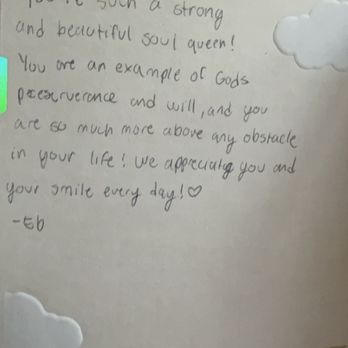 You're such a strong
and beautiful soul queen!
You are an example of Gods
preserverance and will, and you
are so much more above any obstacle
in your life! We appreciate you and
your smile every day!♡
-Eb